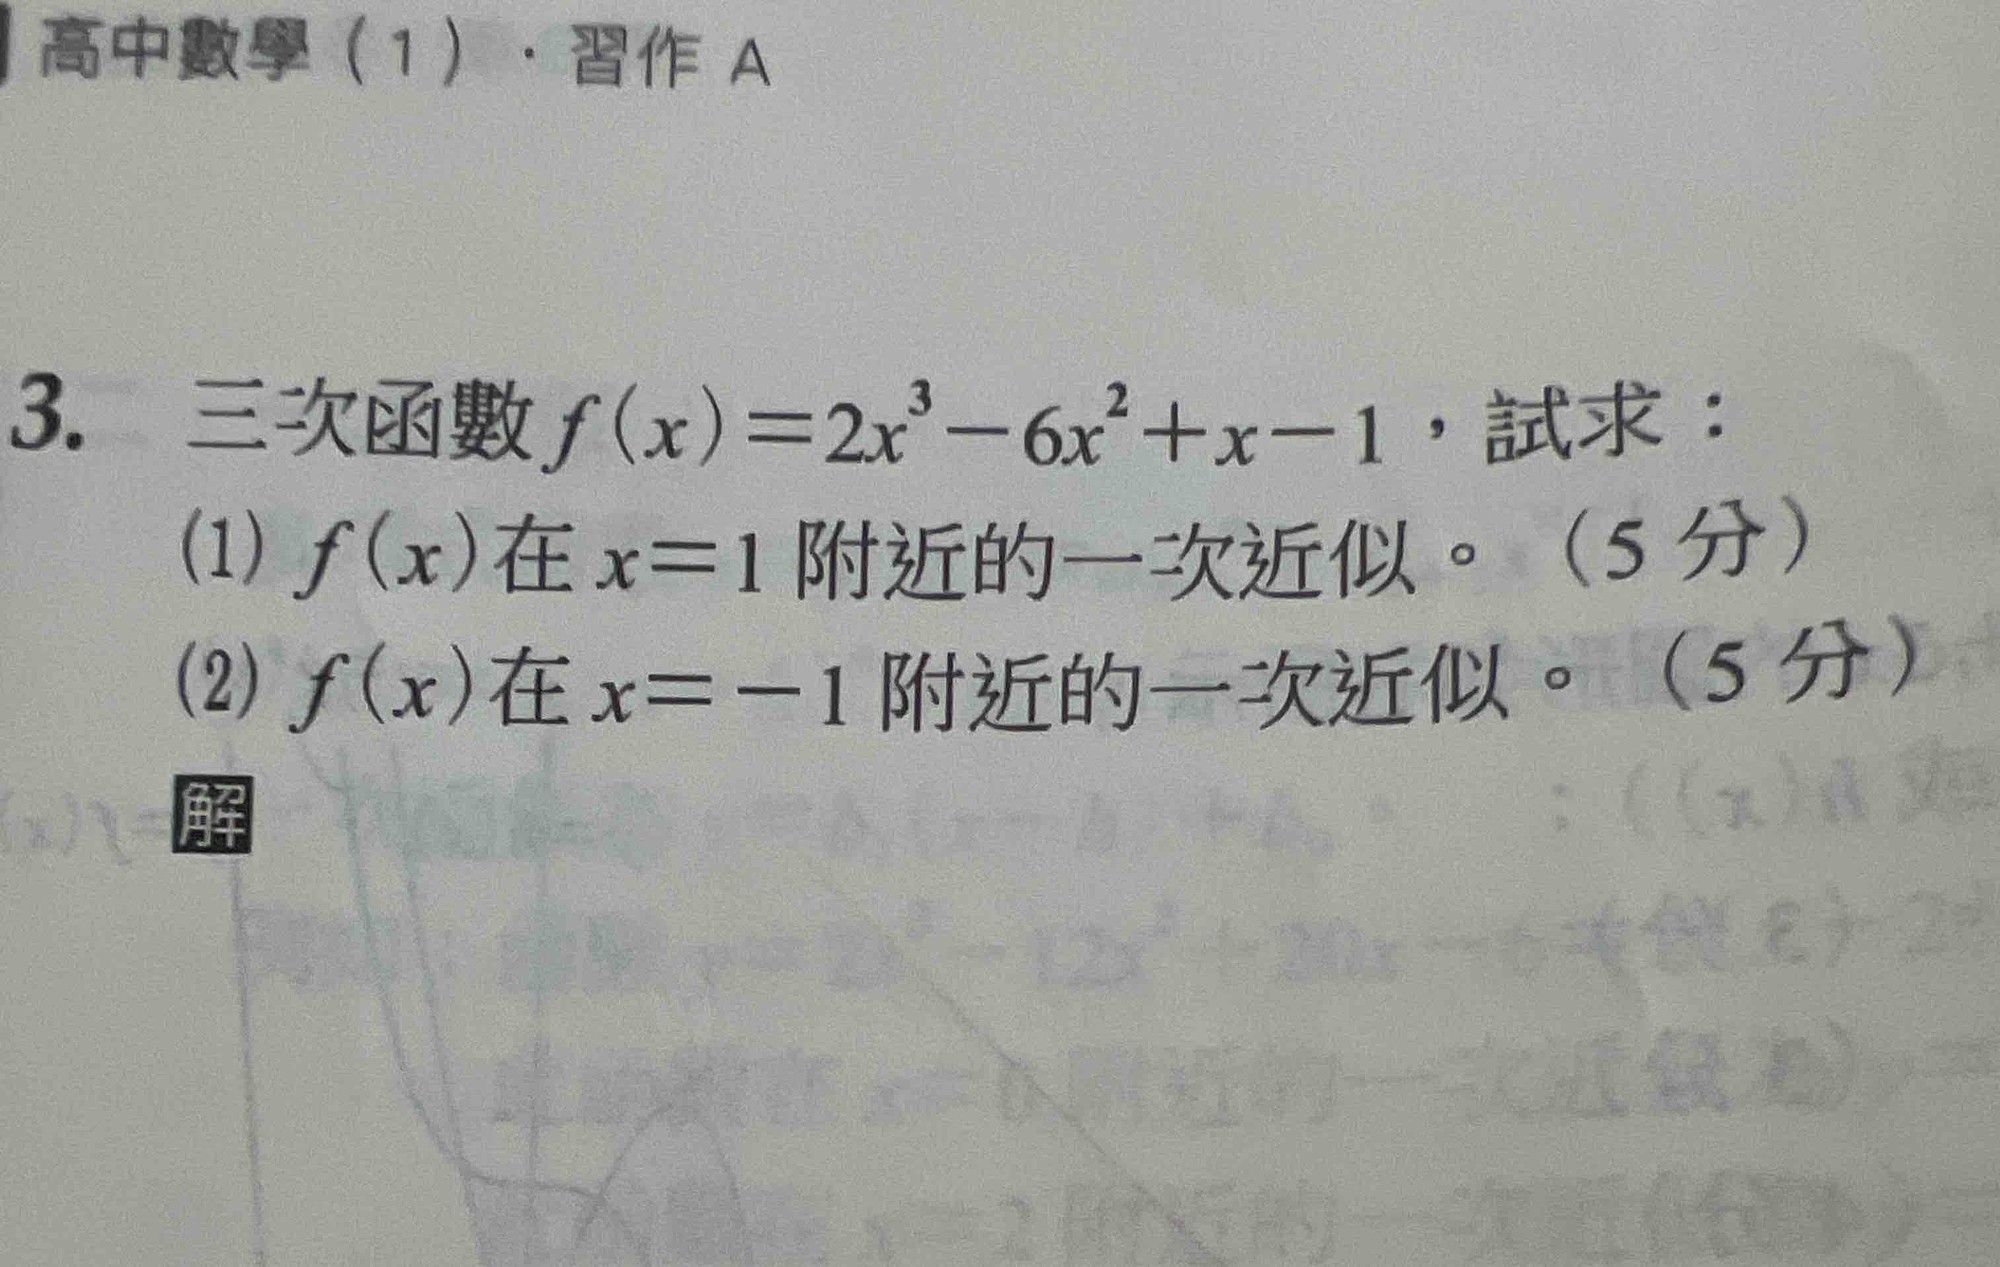 高中數學（1）．習作 A
3. 三次函數 f(x)＝2x³－6x²＋x－1，試求：
(1) f(x)在 x＝1 附近的一次近似。（5 分）
(2) f(x)在 x＝－1 附近的一次近似。（5 分）
解